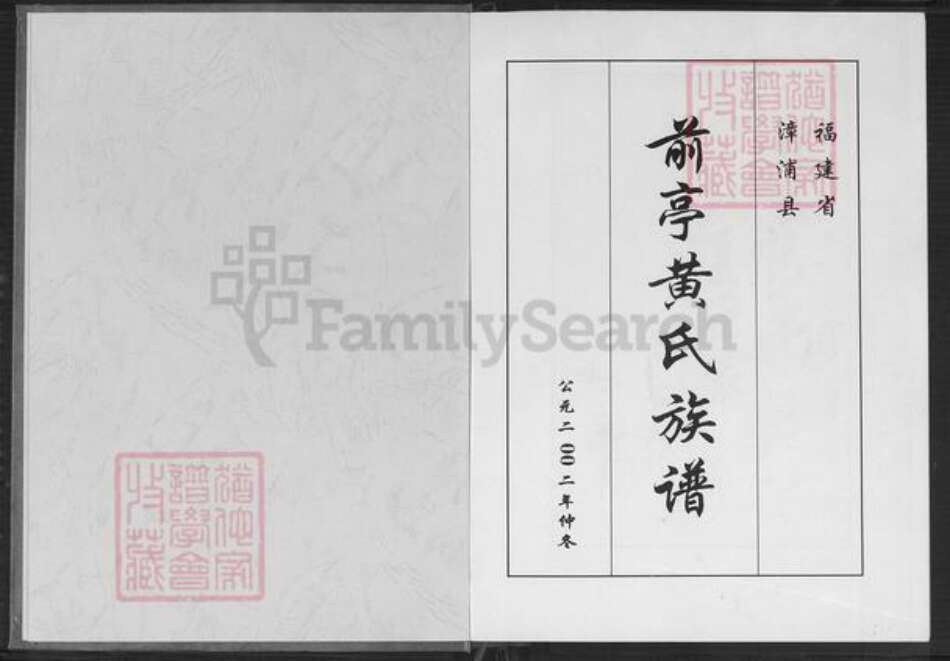 福建省
漳浦县
前亭黄氏族谱
公元二00二年仲冬
猶他家
譜學會
收藏
猶他家
譜學會
收藏
FamilySearch